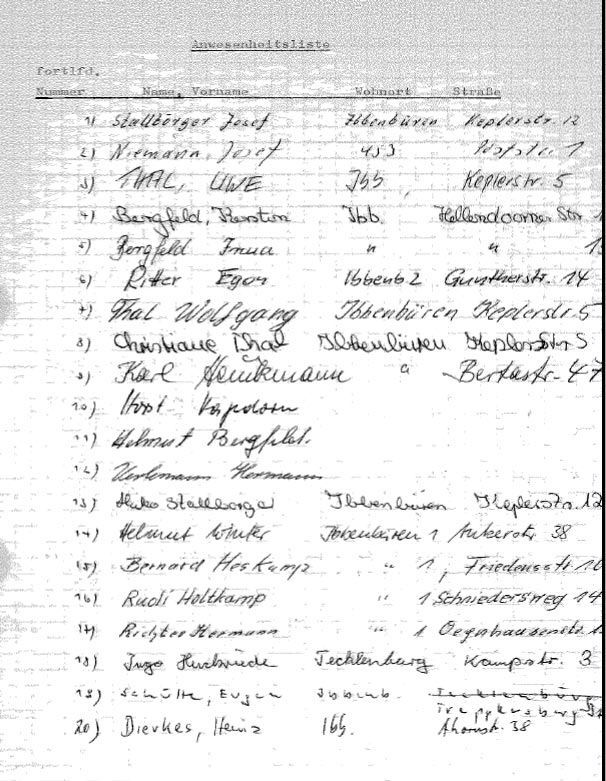 Anwesenheitsliste
fortlfd.
Nummer Name, Vorname Wohnort Straße
1) Stallbörger Josef Ibbenbüren Keplerstr. 12
2) Niemann, Josef 453 1
3) THAL, UWE Ibb, Keplerstr. 5
4) Bergfeld, Kerstin Ibb. Hellendoorner Str. 1
5) Bergfeld " " 1
6) Ritter Egon Ibbenb 2 Guntherstr. 14
7) Thal Wolfgang Ibbenbüren Keplerstr. 5
8) Christiane Thal Ibbenbüren Keplerstr 5
9) Karl " Bertastr. 47
10) Horst
11) Helmut Bergfeld.
12) Hermann
13) Stallbörger Ibbenbüren Keplerstr. 12
14) Helmut Winter Ibbenbüren 1 Ankerstr. 38
15) Bernard Heskamp " 1, Friedensstr.
16) Rudi Holtkamp " 1 Schniedersweg 14
17) Richter Hermann " 1
18) Ingo Tecklenburg Kampstr. 3
19) Schulte, Eugen Ibbenb. Tecklenburg
20) Dierkes, Heinz Ibb. Ahornst. 38